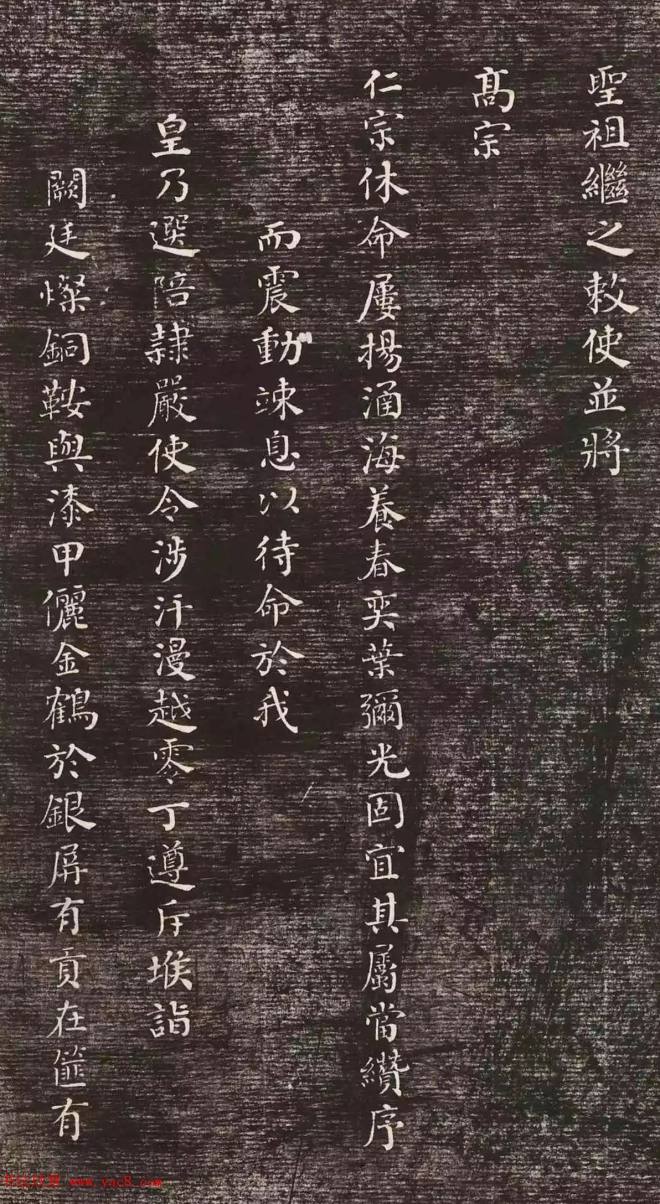 聖祖繼之敕使並將
髙宗
仁宗休命屢揚涵海養春奕葉彌光固宜其屬當纘序
而震動竦息以待命於我
皇乃選陪隷嚴使令涉汗漫越零丁遵斥堠詣
闕廷燦銅鞍與漆甲儷金鶴於銀屏有貢在篚有
www.yac8.com